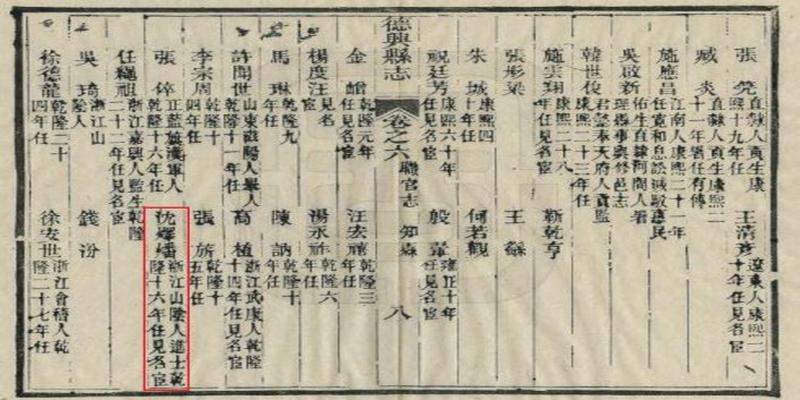 張 直隸人貢生康熙十九年任
王清彥 遼東人康熙二十年任見名宦
臧炎 直隸人貢生康熙二十一年署任有傳
施應昌 江南人康熙二十一年任寬和息訟減耿惠民
吳啟新 佑生直隸河間人署理縣事與修邑志
韓世俊 君懿奉天府人貢監康熙二十三年任
施雲翔 康熙二十八年任見名宦
靳乾亨
張彤梁
王
朱城 康熙四十年任
何若觀
祝廷芳 康熙六十年任見名宦
殷 雍正十年任見名宦
德興縣志
卷之六 職官志 知縣 八
金 乾隆元年任見名宦
汪宏禧 乾隆三年任
楊度汪 見名宦
湯永祚 乾隆六年任
馬琳 乾隆九年任
陳訥 乾隆十年任
許開世 山東人舉人乾隆十一年任
高植 浙江武康人乾隆十四年任
李宗周 乾隆十四年任
張旂 乾隆十五年任
張 正藍旗漢軍人乾隆十六年任
沈 浙江山陰人進士乾隆十六年任見名宦
任繩祖 浙江嘉興人監生乾隆二十二年任見名宦
吳琦 浙江山陰人
錢汾
徐德龍 乾隆二十四年任
徐安世 浙江會稽人乾隆二十七年任